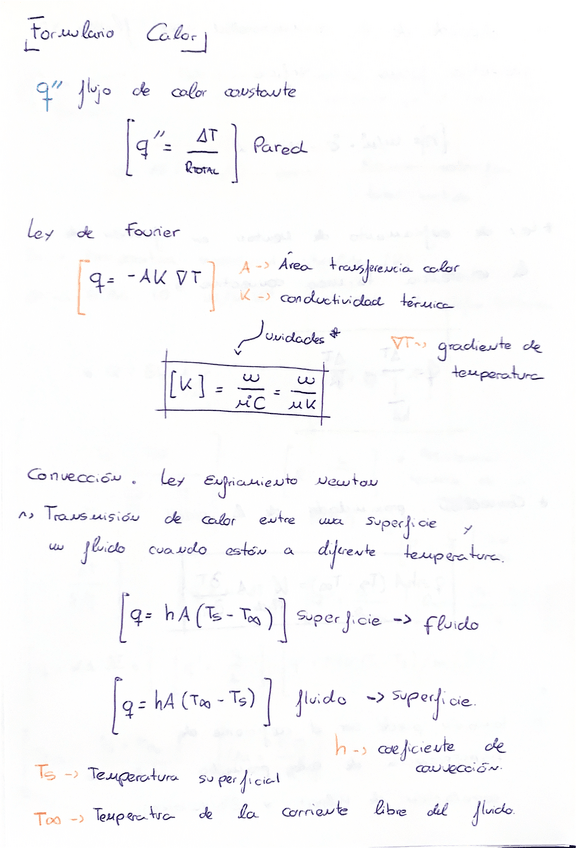 Formulario Calor
q'' flujo de calor constante
[q'' = ΔT / R_TOTAL] Pared
Ley de Fourier
[q = -AK ∇T] A -> Área transferencia calor
K -> conductividad térmica
unidades *
∇T -> gradiente de temperatura
[K] = W / m°C = W / mK
Convección. Ley Enfriamiento Newton
~> Transmisión de calor entre una superficie y
un fluido cuando están a diferente temperatura.
[q = hA(Ts - T∞)] superficie -> fluido
[q = hA(T∞ - Ts)] fluido -> superficie.
h -> coeficiente de convección.
Ts -> Temperatura superficial
T∞ -> Temperatura de la corriente libre del fluido.